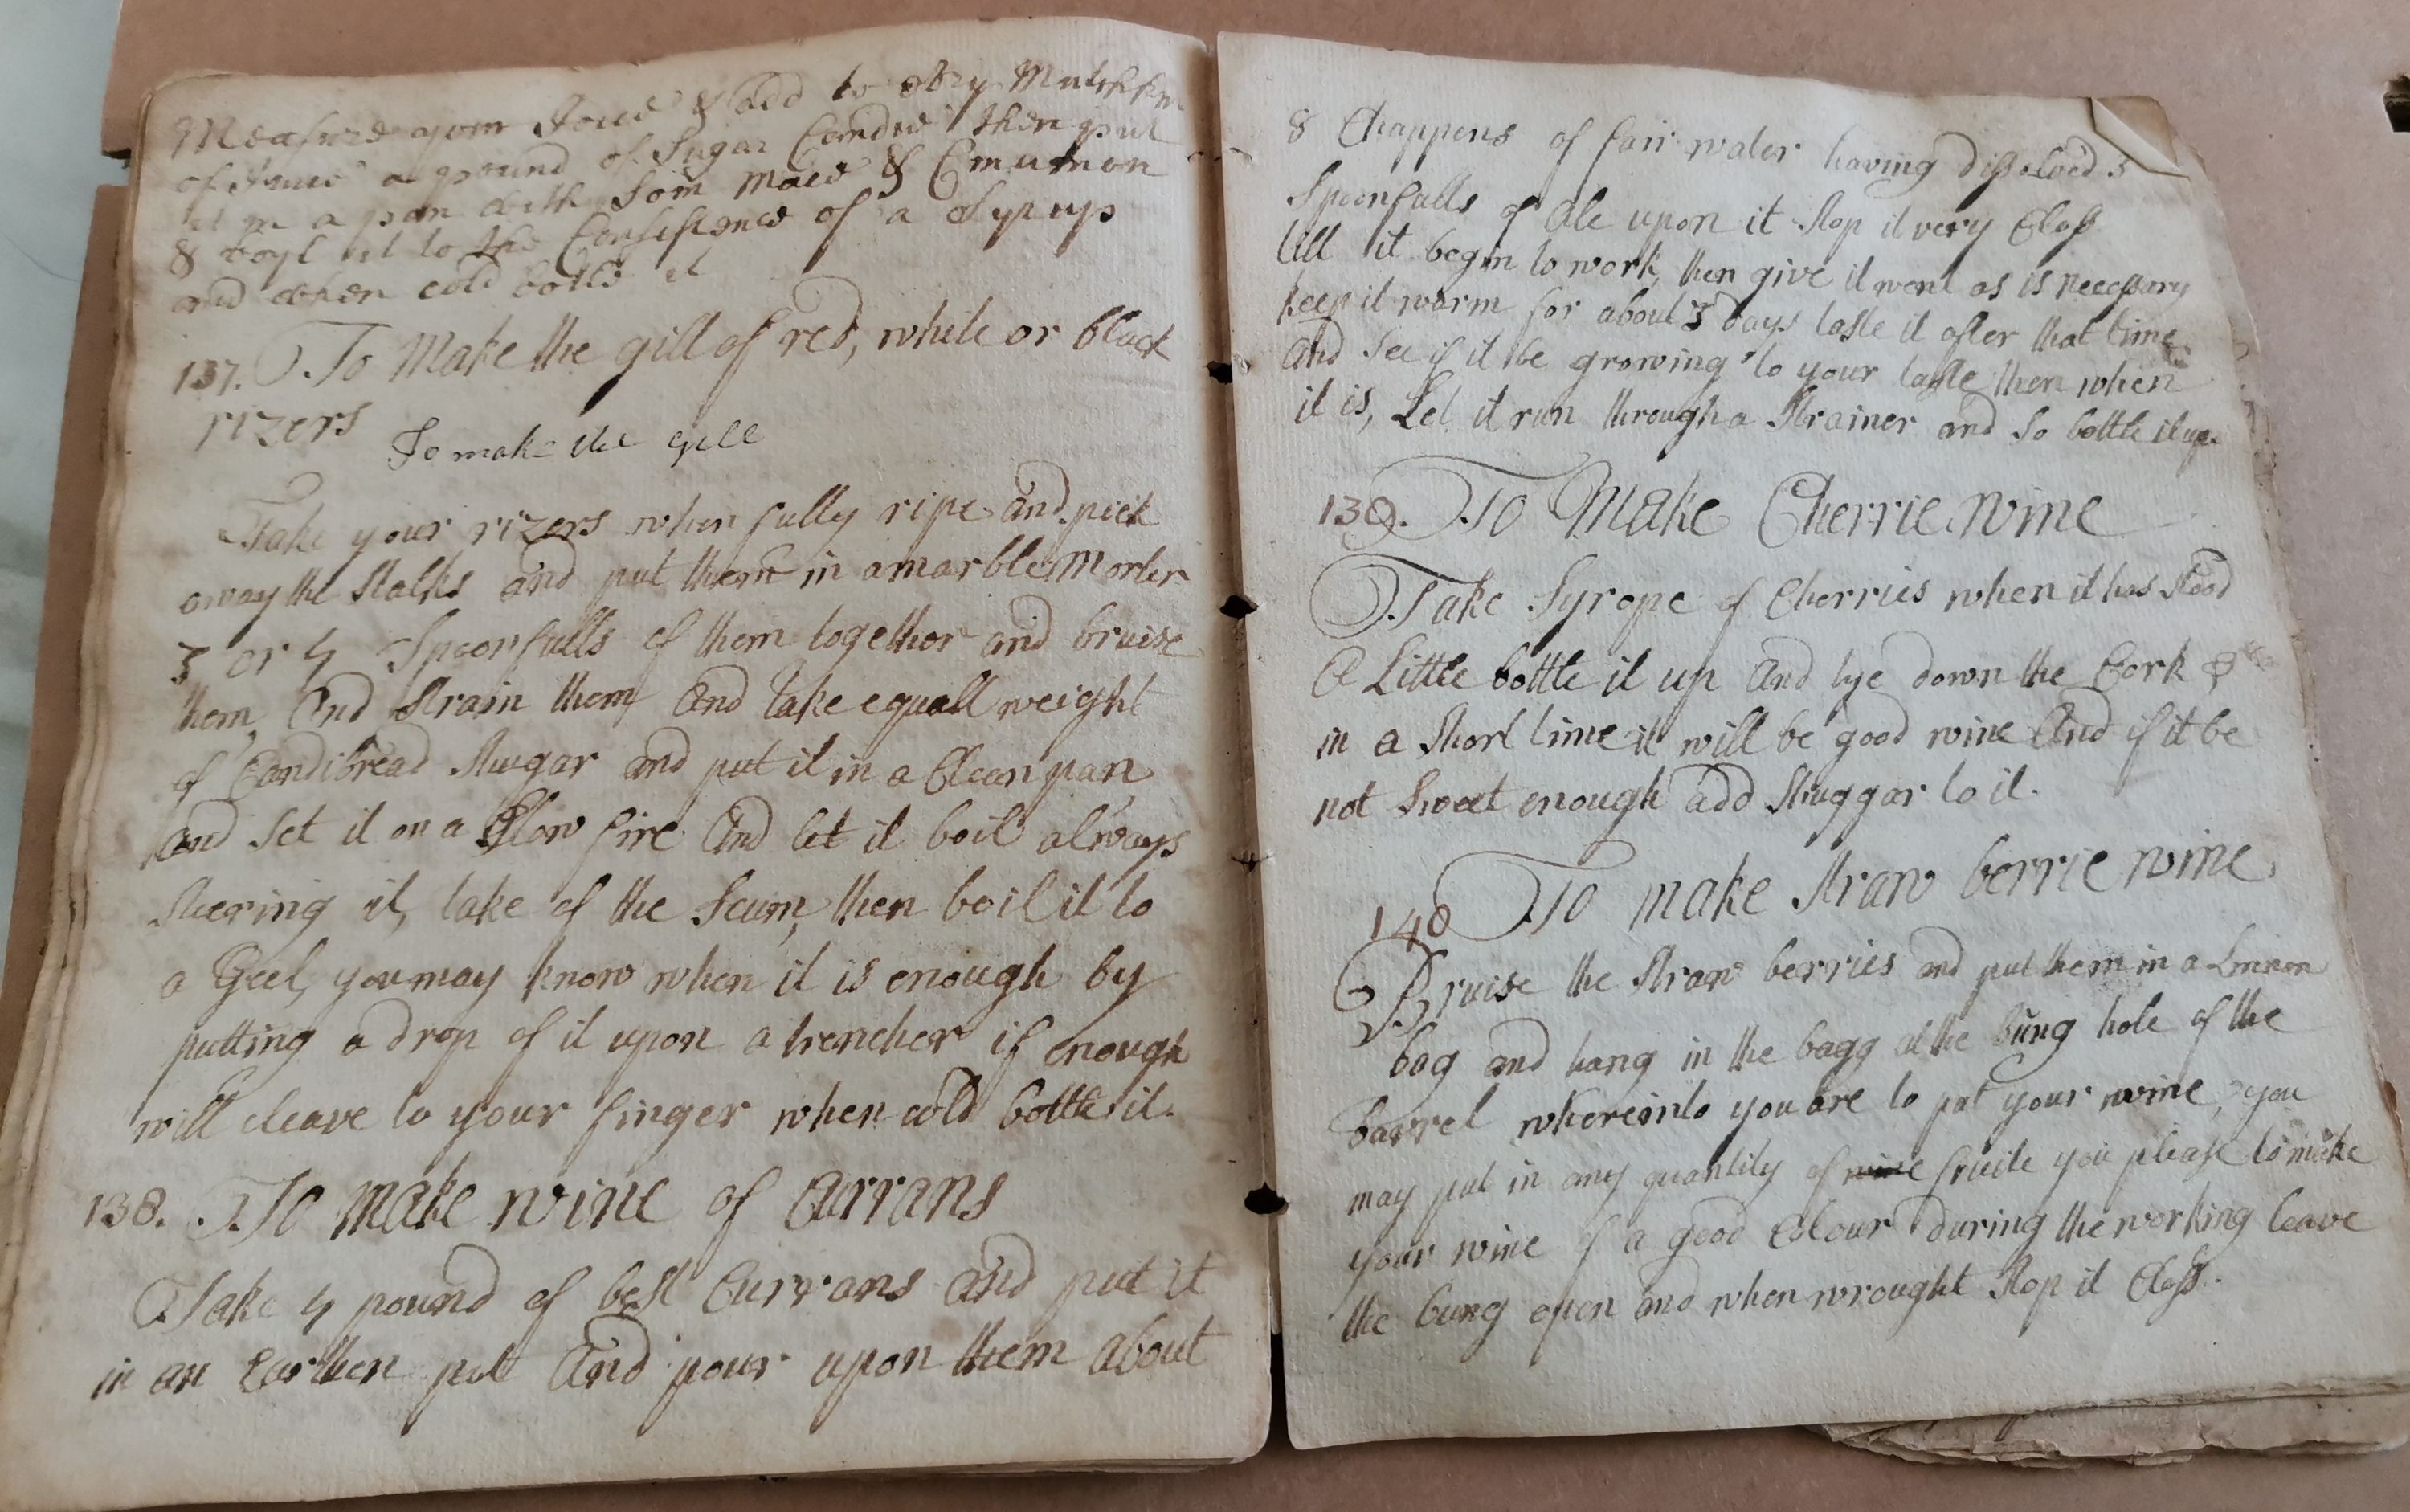 Measure your Jouce & add to evry Mutchkin
of Juice a pound of Sugar Candie then put
it in a pan with Som Mace & Cinumon
& boyl it to the Consistence of a Syrup
and when cold botle it
137. To Make the gill of red, white or black
rizers
To make the gele
Take your rizers when fully ripe and pick
away the stalks and put them in a marble Morter
3 or 4 Spoonfulls of them together and bruise
them, And strain them, and take equall weight
of Candibread Shugar and put it in a Clean pan
and set it on a slow fire And let it boil always
steering it, take of the Scum, then boil it to
a Geel, you may know when it is enough by
putting a drop of it upon a trencher if enough
will cleave to your finger when cold bottle it.
138. To make wine of Currans
Take 4 pound of best Currans and put it
in an Earthen pott And pour upon them about
8 Chappens of fair water having dissolved 3
Spoonfulls of Ale upon it stop it very Closs
till it begin to work, then give it vent as is necessary
keep it warm for about 3 days taste it after that time
and see if it be growing to your taste then when
it is, Let it run through a Strainer and so bottle it up.
139. To Make Cherrie wine
Take Syrope of Cherries when it has stood
A Little bottle it up And tye down the Cork &
in a short time it will be good wine And if it be
not sweet enough add Shuggar to it.
140 To make Straw berrie wine
Bruise the Straw berries and put them in a Linnon
bag and hang in the bagg at the bung hole of the
barrel whereinto you are to put your wine, you
may put in any quantity of wine fruite you please to make
your wine of a good Colour during the working leave
the bung open and when wrought stop it Closs.